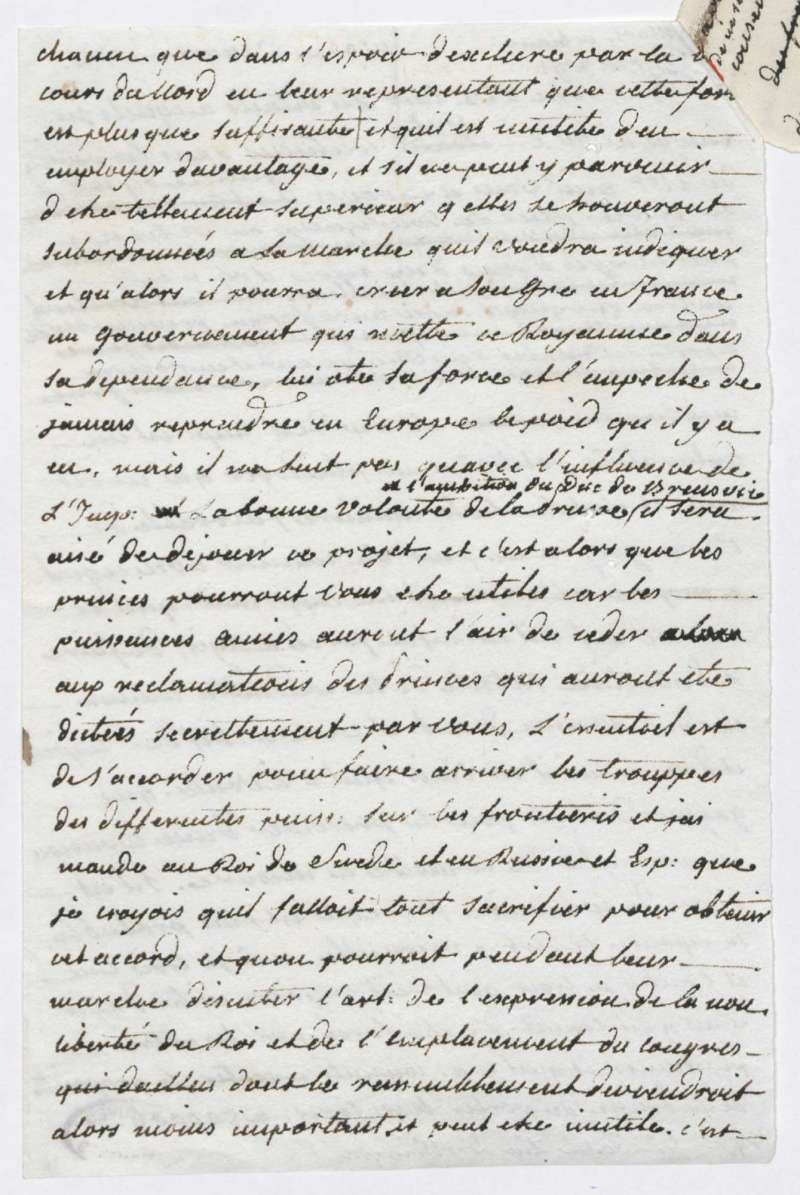 chacun que dans l'espoir d'exclure par la
cours du Nord en leur representant que cette for
est plus que suffisante et quil est inutile d'en
employer davantage, et s'il ne peut y parvenir
d'etre tellement superieur q elles se trouveront
subordonnées a la marche quil voudra indiquer
et qu'alors il pourra creer a son Gre en France
un Gouvernement qui mette ce Royaume dans
sa dependance, lui ote sa force et l'empeche de
jamais reprendre en Europe le poid qu il y a
eu, mais il ne sent pas quavec l'influence de
et l'ambition du Duc de Brunsvic
L'Imp: la bonne volonte de la prusse, il sera
aisé de dejouer ce projet, et c'est alors que les
princes pourront vous etre utiles car les
puissances amies auront l'air de ceder
aux reclamations des Princes qui auront ete
dictées secrettement par vous, L'essentiel est
de s'accorder pour faire arriver les trouppes
des differentes puis: sur les frontieres et jai
mande au Roi de Suede et en Russie et Esp: que
je croyois quil falloit tout sacrifier pour obtenir
cet accord, et quon pourroit pendant leur
marche discuter l'art: de l'expression de la non
liberté du Roi et de l'emplacement du congres
qui dailleurs dont le rassemblement deviendroit
alors moins important et peut etre inutile. c'est